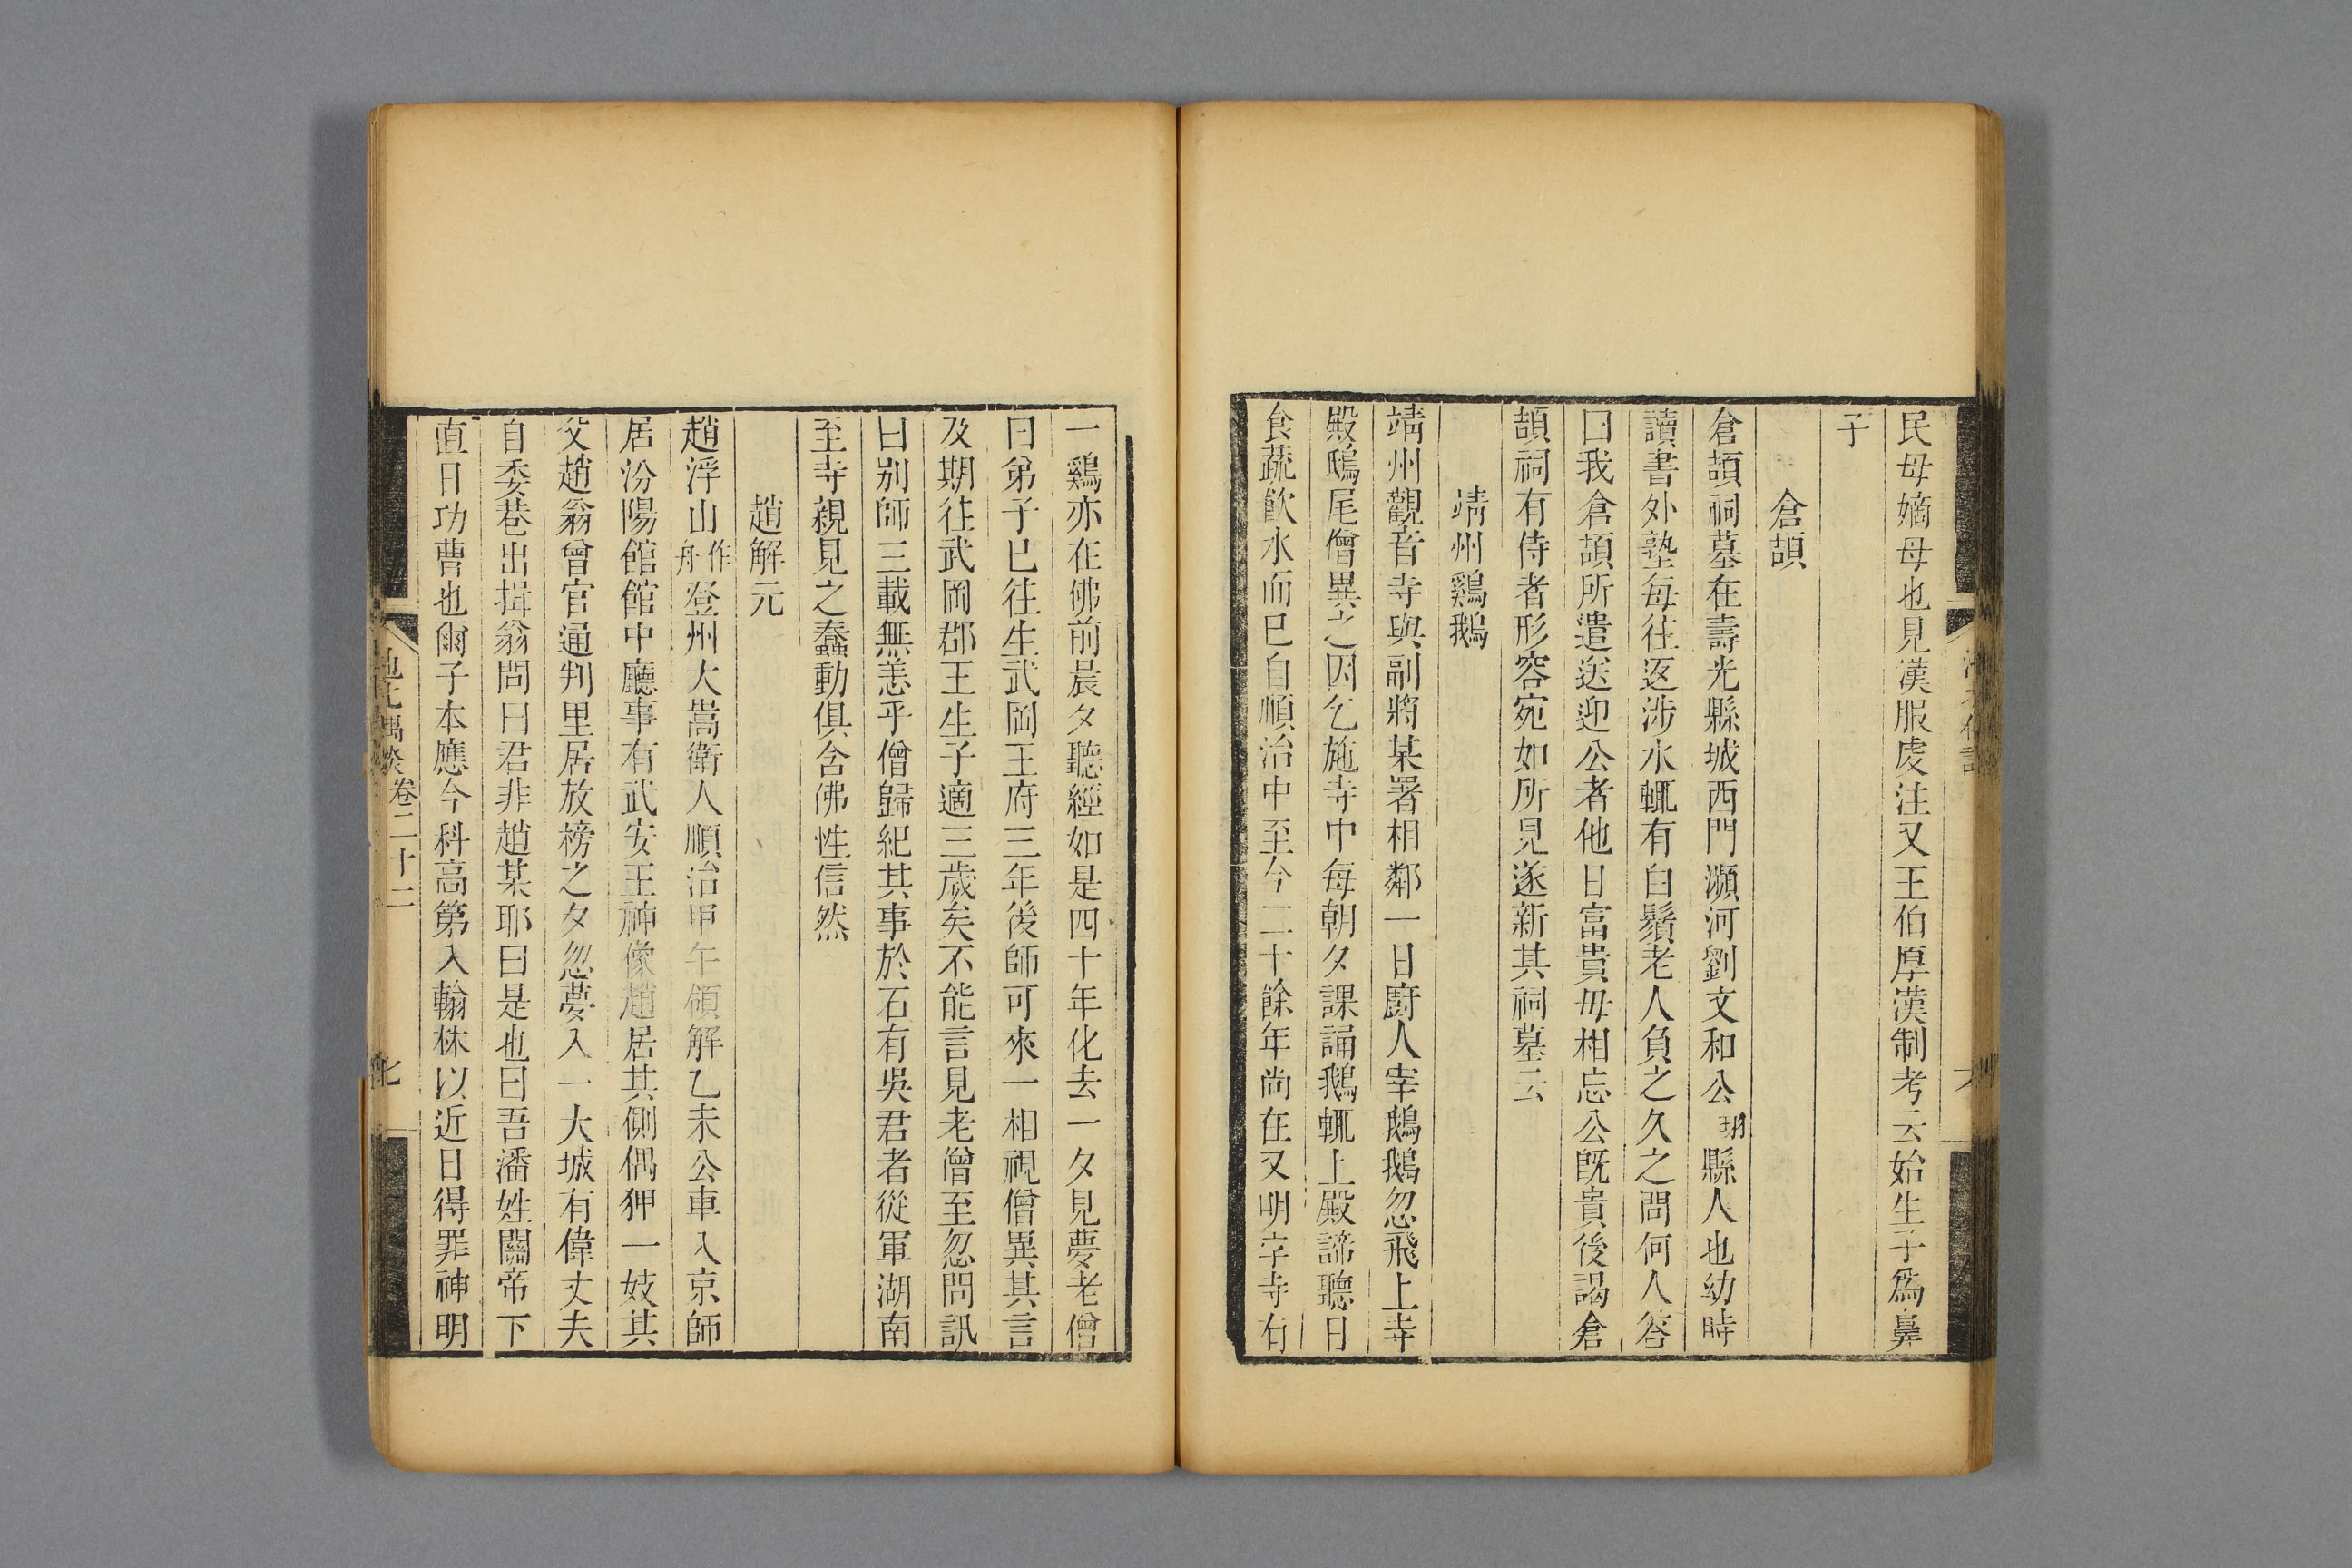 民母嫡母也見漢服虔注又王伯厚漢制考云始生子爲鼻
子
倉頡
倉頡祠墓在壽光縣城西門瀕河劉文和公珝縣人也幼時
讀書外塾每往返涉水輒有白鬚老人負之久之問何人答
曰我倉頡所遣送迎公者他日富貴毋相忘公旣貴後謁倉
頡祠有侍者形容宛如所見遂新其祠墓云
靖州鷄鵝
靖州觀音寺與副將某署相鄰一日廚人宰鵝鵝忽飛上寺
殿鴟尾僧異之因乞施寺中每朝夕課誦鵝輒上殿諦聽日
食蔬飮水而已自順治中至今二十餘年尚在又明字寺有
一鷄亦在佛前晨夕聽經如是四十年化去一夕見夢老僧
曰弟子已往生武岡王府三年後師可來一相視僧異其言
及期往武岡郡王生子適三歲矣不能言見老僧至忽問訊
曰别師三載無恙乎僧歸紀其事於石有吳君者從軍湖南
至寺親見之蠢動俱含佛性信然
趙解元
趙浮山作舟登州大嵩衛人順治甲午領解乙未公車入京師
居汾陽館館中廳事有武安王神像趙居其側偶狎一妓其
父趙翁曾官通判里居放榜之夕忽夢入一大城有偉丈夫
自委巷出揖翁問曰君非趙某耶曰是也曰吾潘姓關帝下
直日功曹也爾子本應今科高第入翰林以近日得罪神明
池北偶談 卷二十二 七